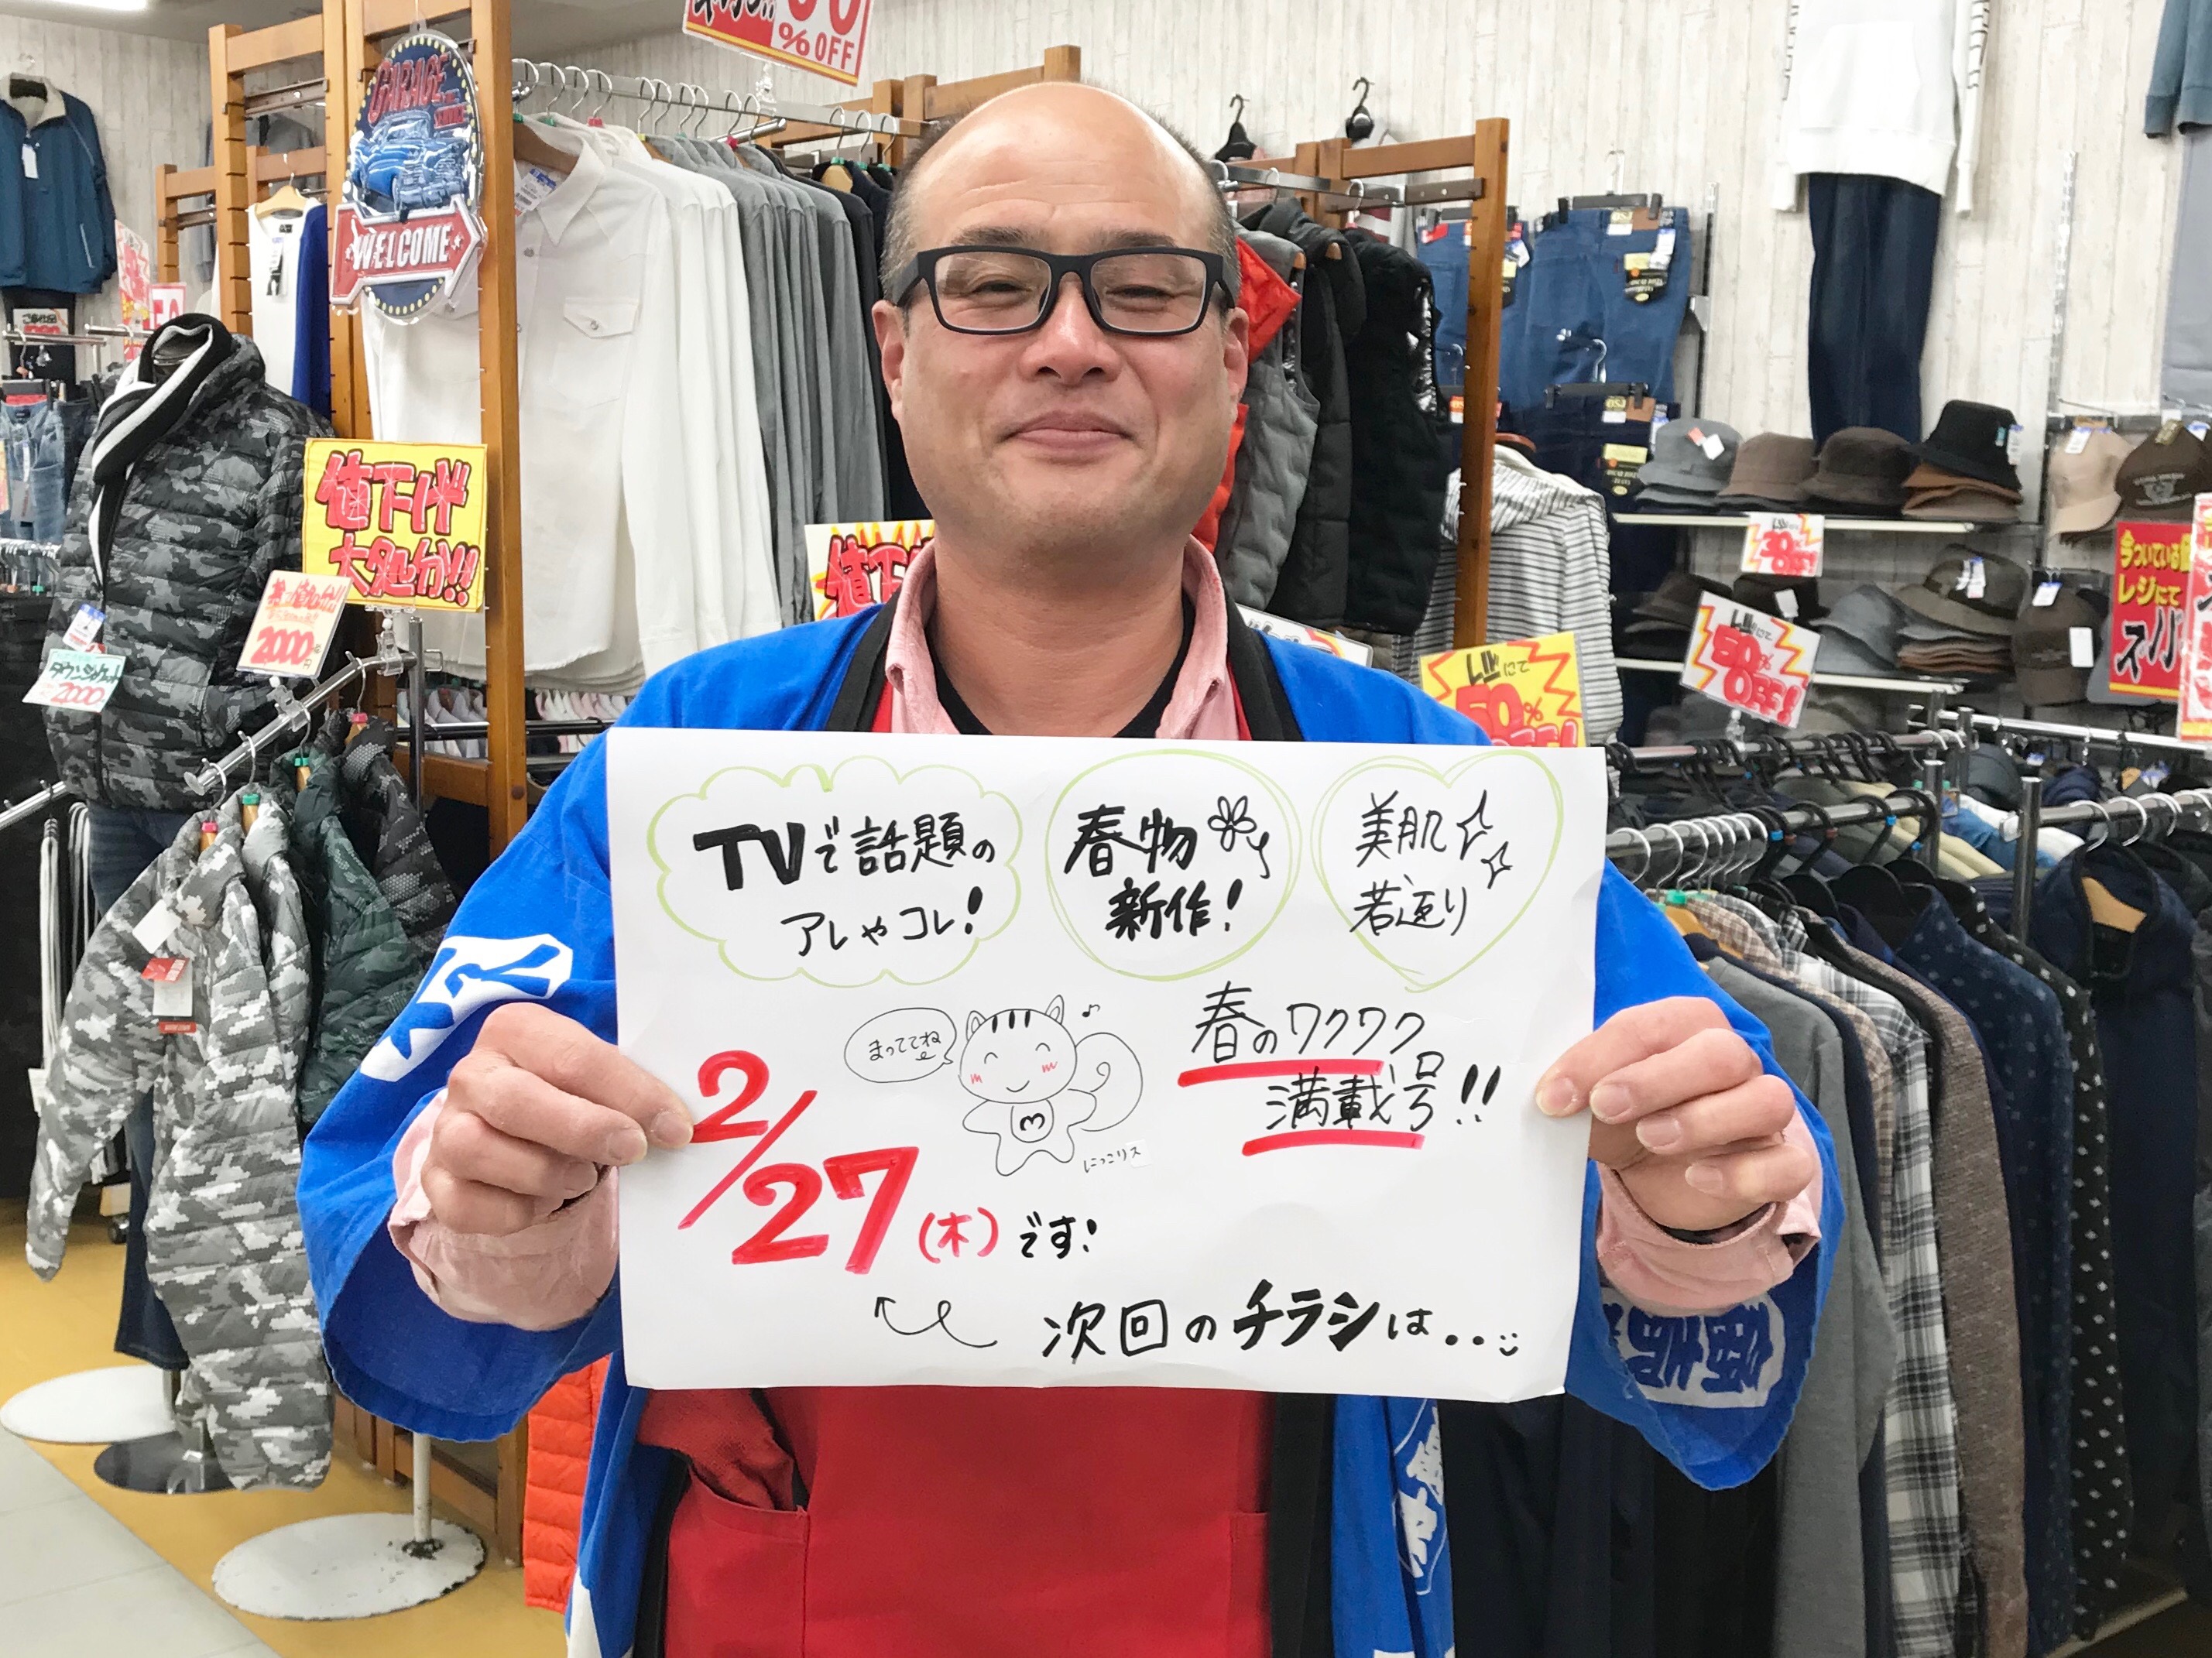 %OFF
GARAGE
SERVICE
WELCOME
値下げ
大処分!!
2000
円
ダウンジャケット
2000
値下
レジにて
50%
レジにて
30%
OFF!
レジにて
50%
OFF!
今ついている
レジにて
TVで話題の
アレやコレ!
春物
新作!
美肌
若返り
まっててね
にっこりス
春のワクワク
満載号!!
2/27(木)です!
次回のチラシは・・